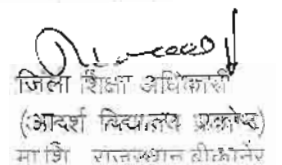 जिला शिक्षा अधिकारी
(आदर्श विद्यालय प्रकोष्ठ)
मा शि राजस्थान बीकानेर